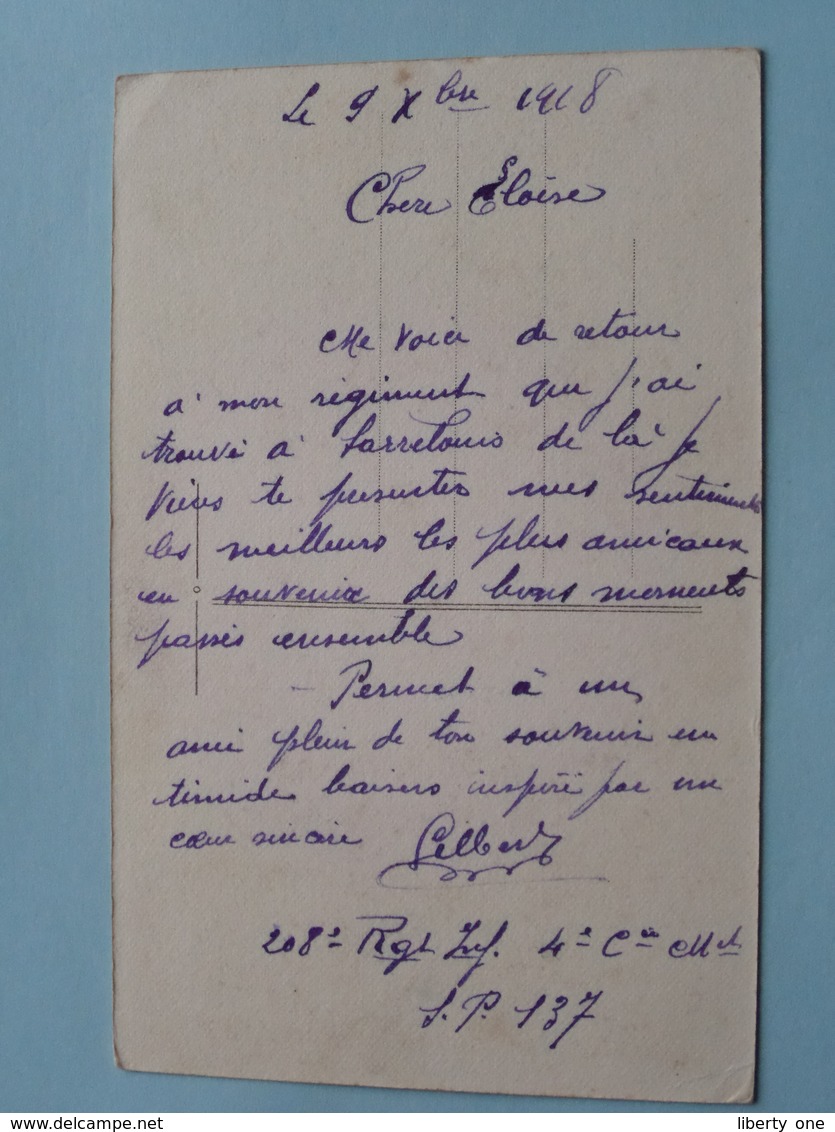 Le 9 Xbre 1918
Chere Eloïse
Me voici de retour
à mon régiment que j'ai
trouvé à Sarrelouis de là je
viens te presenter mes sentiments
les meilleurs les plus amicaux
en souvenir des bons moments
passés ensemble
- Permet à un
ami plein de ton souvenir un
timide baisers inspiré par un
cœur sincère Gilbert
208e Rgt Inf. 4e Cie Mit
S.P. 137
delcampe.net
liberty one